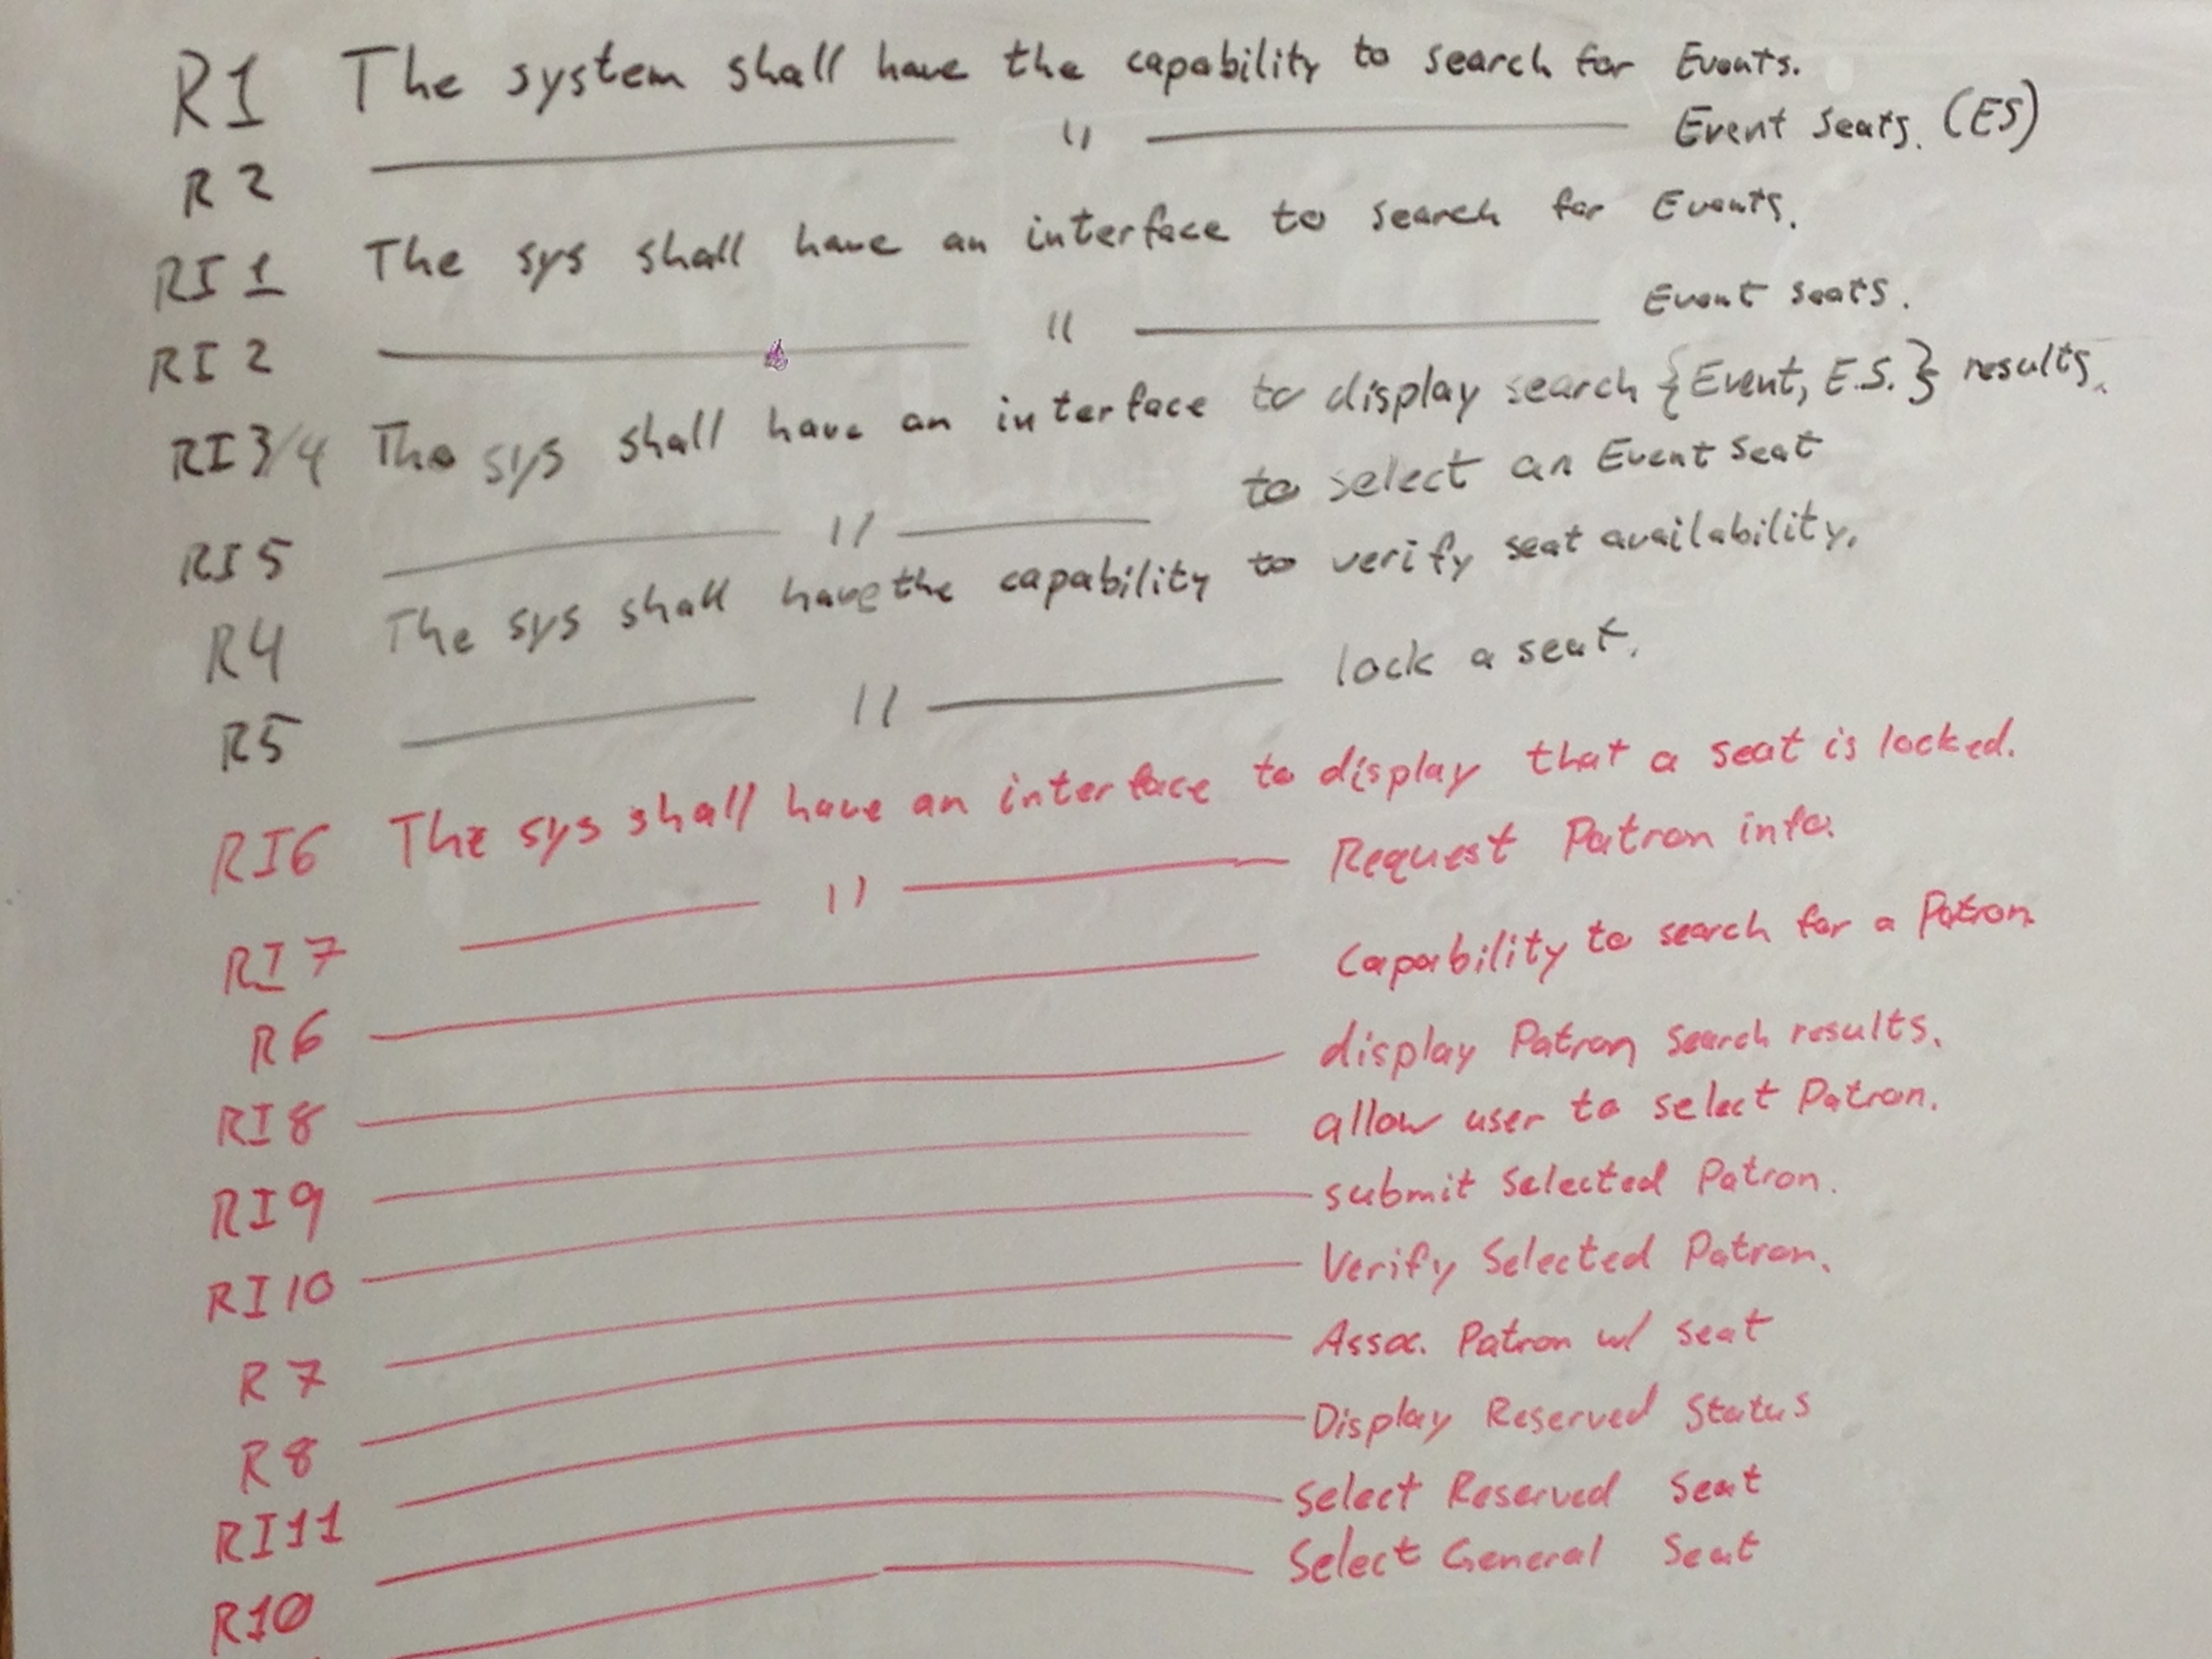 R1 The system shall have the capability to search for Events.
R2 —— " —— Event Seats. (ES)
RI1 The sys shall have an interface to search for Events.
RI2 —— " —— Event seats.
RI3/4 The sys shall have an interface to display search {Event, E.S.} results.
RI5 —— " —— to select an Event Seat
R4 The sys shall have the capability to verify seat availability.
R5 —— " —— lock a seat.
RI6 The sys shall have an interface to display that a seat is locked.
RI7 —— " —— Request Patron info.
R6 —— Capability to search for a Patron
RI8 —— display Patron search results.
RI9 —— allow user to select Patron.
RI10 —— submit Selected Patron.
R7 —— Verify Selected Patron.
R8 —— Assoc. Patron w/ seat
RI11 —— Display Reserved Status
R10 —— Select Reserved Seat
—— Select General Seat